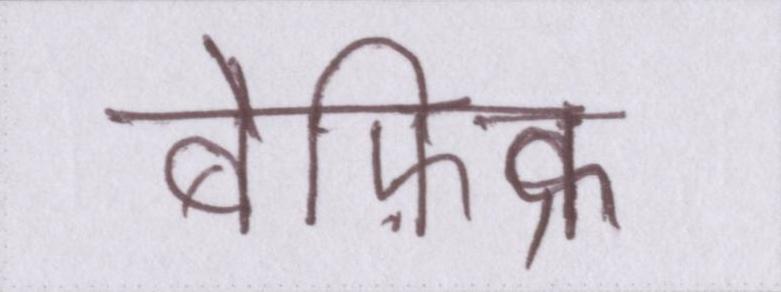 बेफ़िक्र